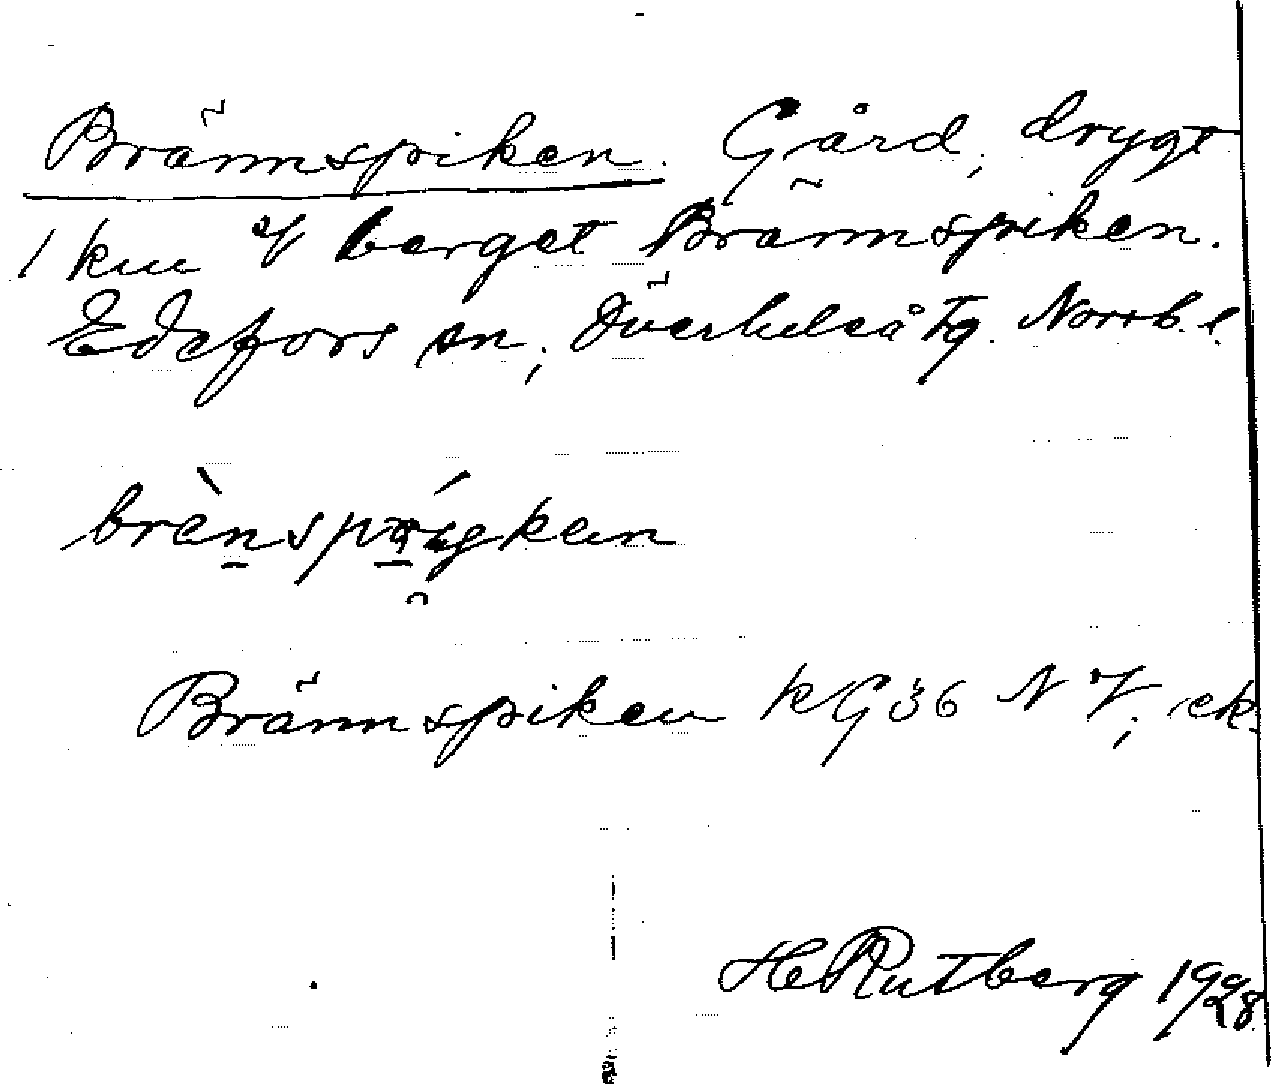 Brännspiken. Gård, drygt
1 km berget Brännspiken.
Edefors sn, Överluleå tg. Norrb. l.
Brännspiken KG 36 N V, ek.
H Rutberg 1928